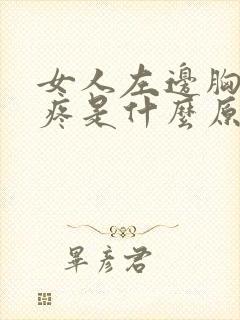 女人左邊胸
疼是什麼原
畢彥君